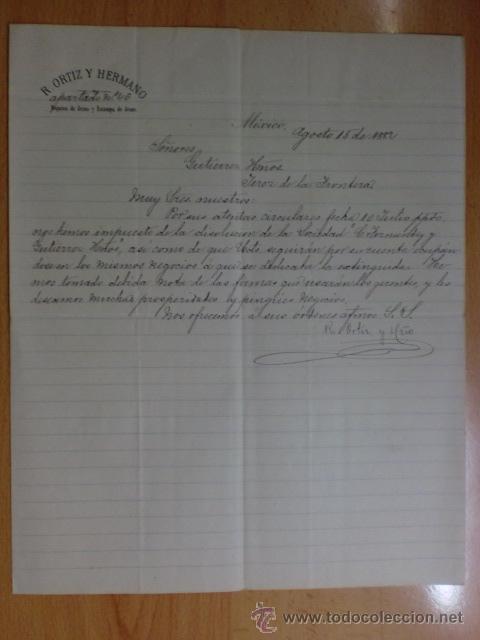 R. ORTIZ Y HERMANO
apartado No. 46
México, Agosto 15 de 1882
Señores
Gutierrez Hños
Jerez de la Frontera
Muy Sres nuestros:
Por sus atentas circulares fecha 10 Julio ppdo,
nos hemos impuesto de la disolucion de la Sociedad "C. Fernandez y
Gutierrez Hños", asi como de que Uds seguirán por su cuenta ocupan
dose en los mismos negocios á que se dedicaba la estinguida. He-
mos tomado debida nota de las firmas que usarán los gerentes, y les
deseamos muchas prosperidades y pingües negocios.
Nos ofrecemos a sus ordenes afmos. S. S.
R. Ortiz y Hño
todocoleccion
www.todocoleccion.net